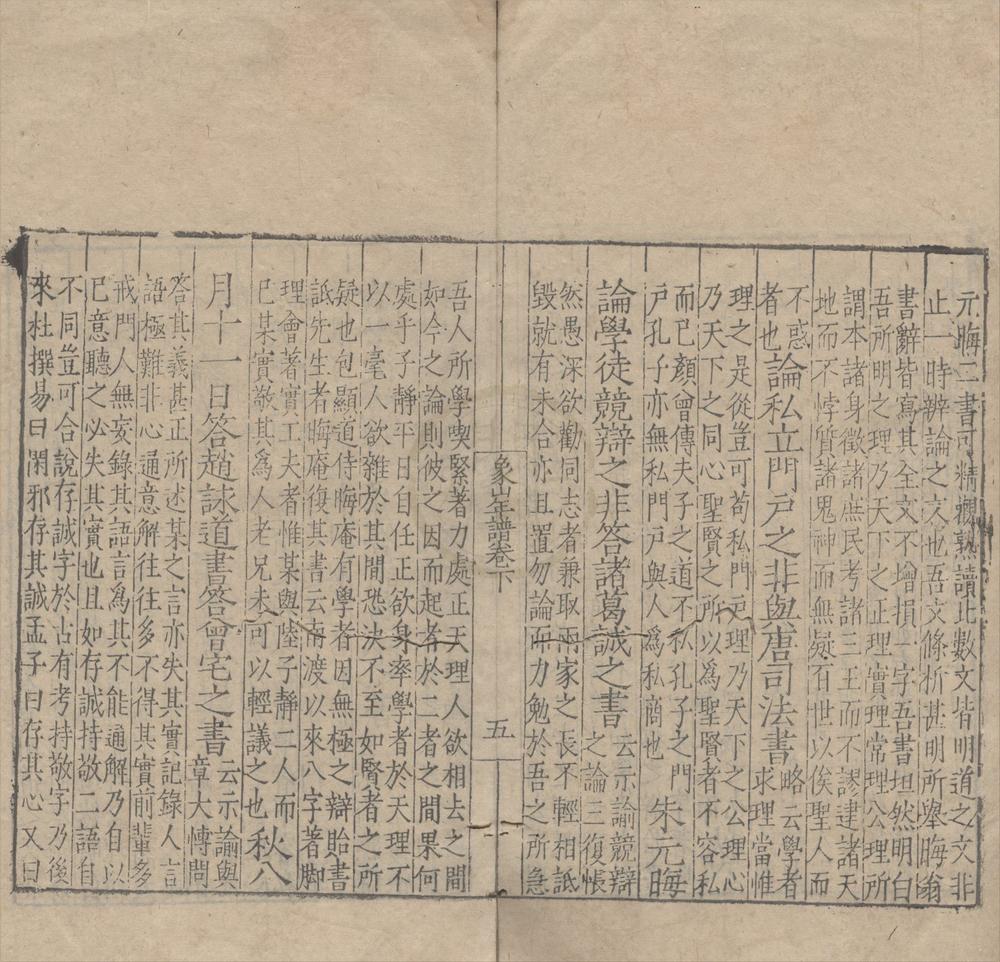 元晦二書可精觀熟讀此數文皆明道之文非
止一時辨論之文也吾文條析甚明所舉晦翁
書辭皆寫其全文不增損一字吾書坦然明白
吾所明之理乃天下之正理實理常理公理所
謂本諸身徵諸庶民考諸三王而不謬建諸天
地而不悖質諸鬼神而無疑百世以俟聖人而
不惑
者也
論私立門戶之非與唐司法書
略云學者
求理當惟
理之是從豈可苟私門戶理乃天下之公理心
乃天下之同心聖賢之所以爲聖賢者不容私
而已顏曾傳夫子之道不私孔子之門
戶孔子亦無私門戶與人爲私商也
朱元晦
論學徒競辯之非答諸葛誠之書
云示諭競辯
之論三復悵
然愚深欲勸同志者兼取兩家之長不輕相詆
毀就有未合亦且置勿論而力勉於吾之所急
象山年譜卷下
五
吾人所學喫緊著力處正天理人欲相去之間
如今之論則彼之因而起者於二者之間果何
處乎子靜平日自任正欲身率學者於天理不
以一毫人欲雜於其間恐決不至如賢者之所
疑也包顯道侍晦庵有學者因無極之辯貽書
詆先生者晦庵復其書云南渡以來八字著脚
理會著實工夫者惟某與陸子靜二人而
已某實敬其爲人老兄未可以輕議之也
秋八
月十一日答趙詠道書答曾宅之書
云示論與
章大博問
答其義甚正所述某之言亦失其實記錄人言
語極難非心通意解往往多不得其實前輩多
戒門人無妄錄其語言爲其不能通解乃自以
已意聽之必失其實也且如存誠持敬二語自
不同豈可合說存誠字於古有考持敬字乃後
來杜撰易曰閑邪存其誠孟子曰存其心又曰